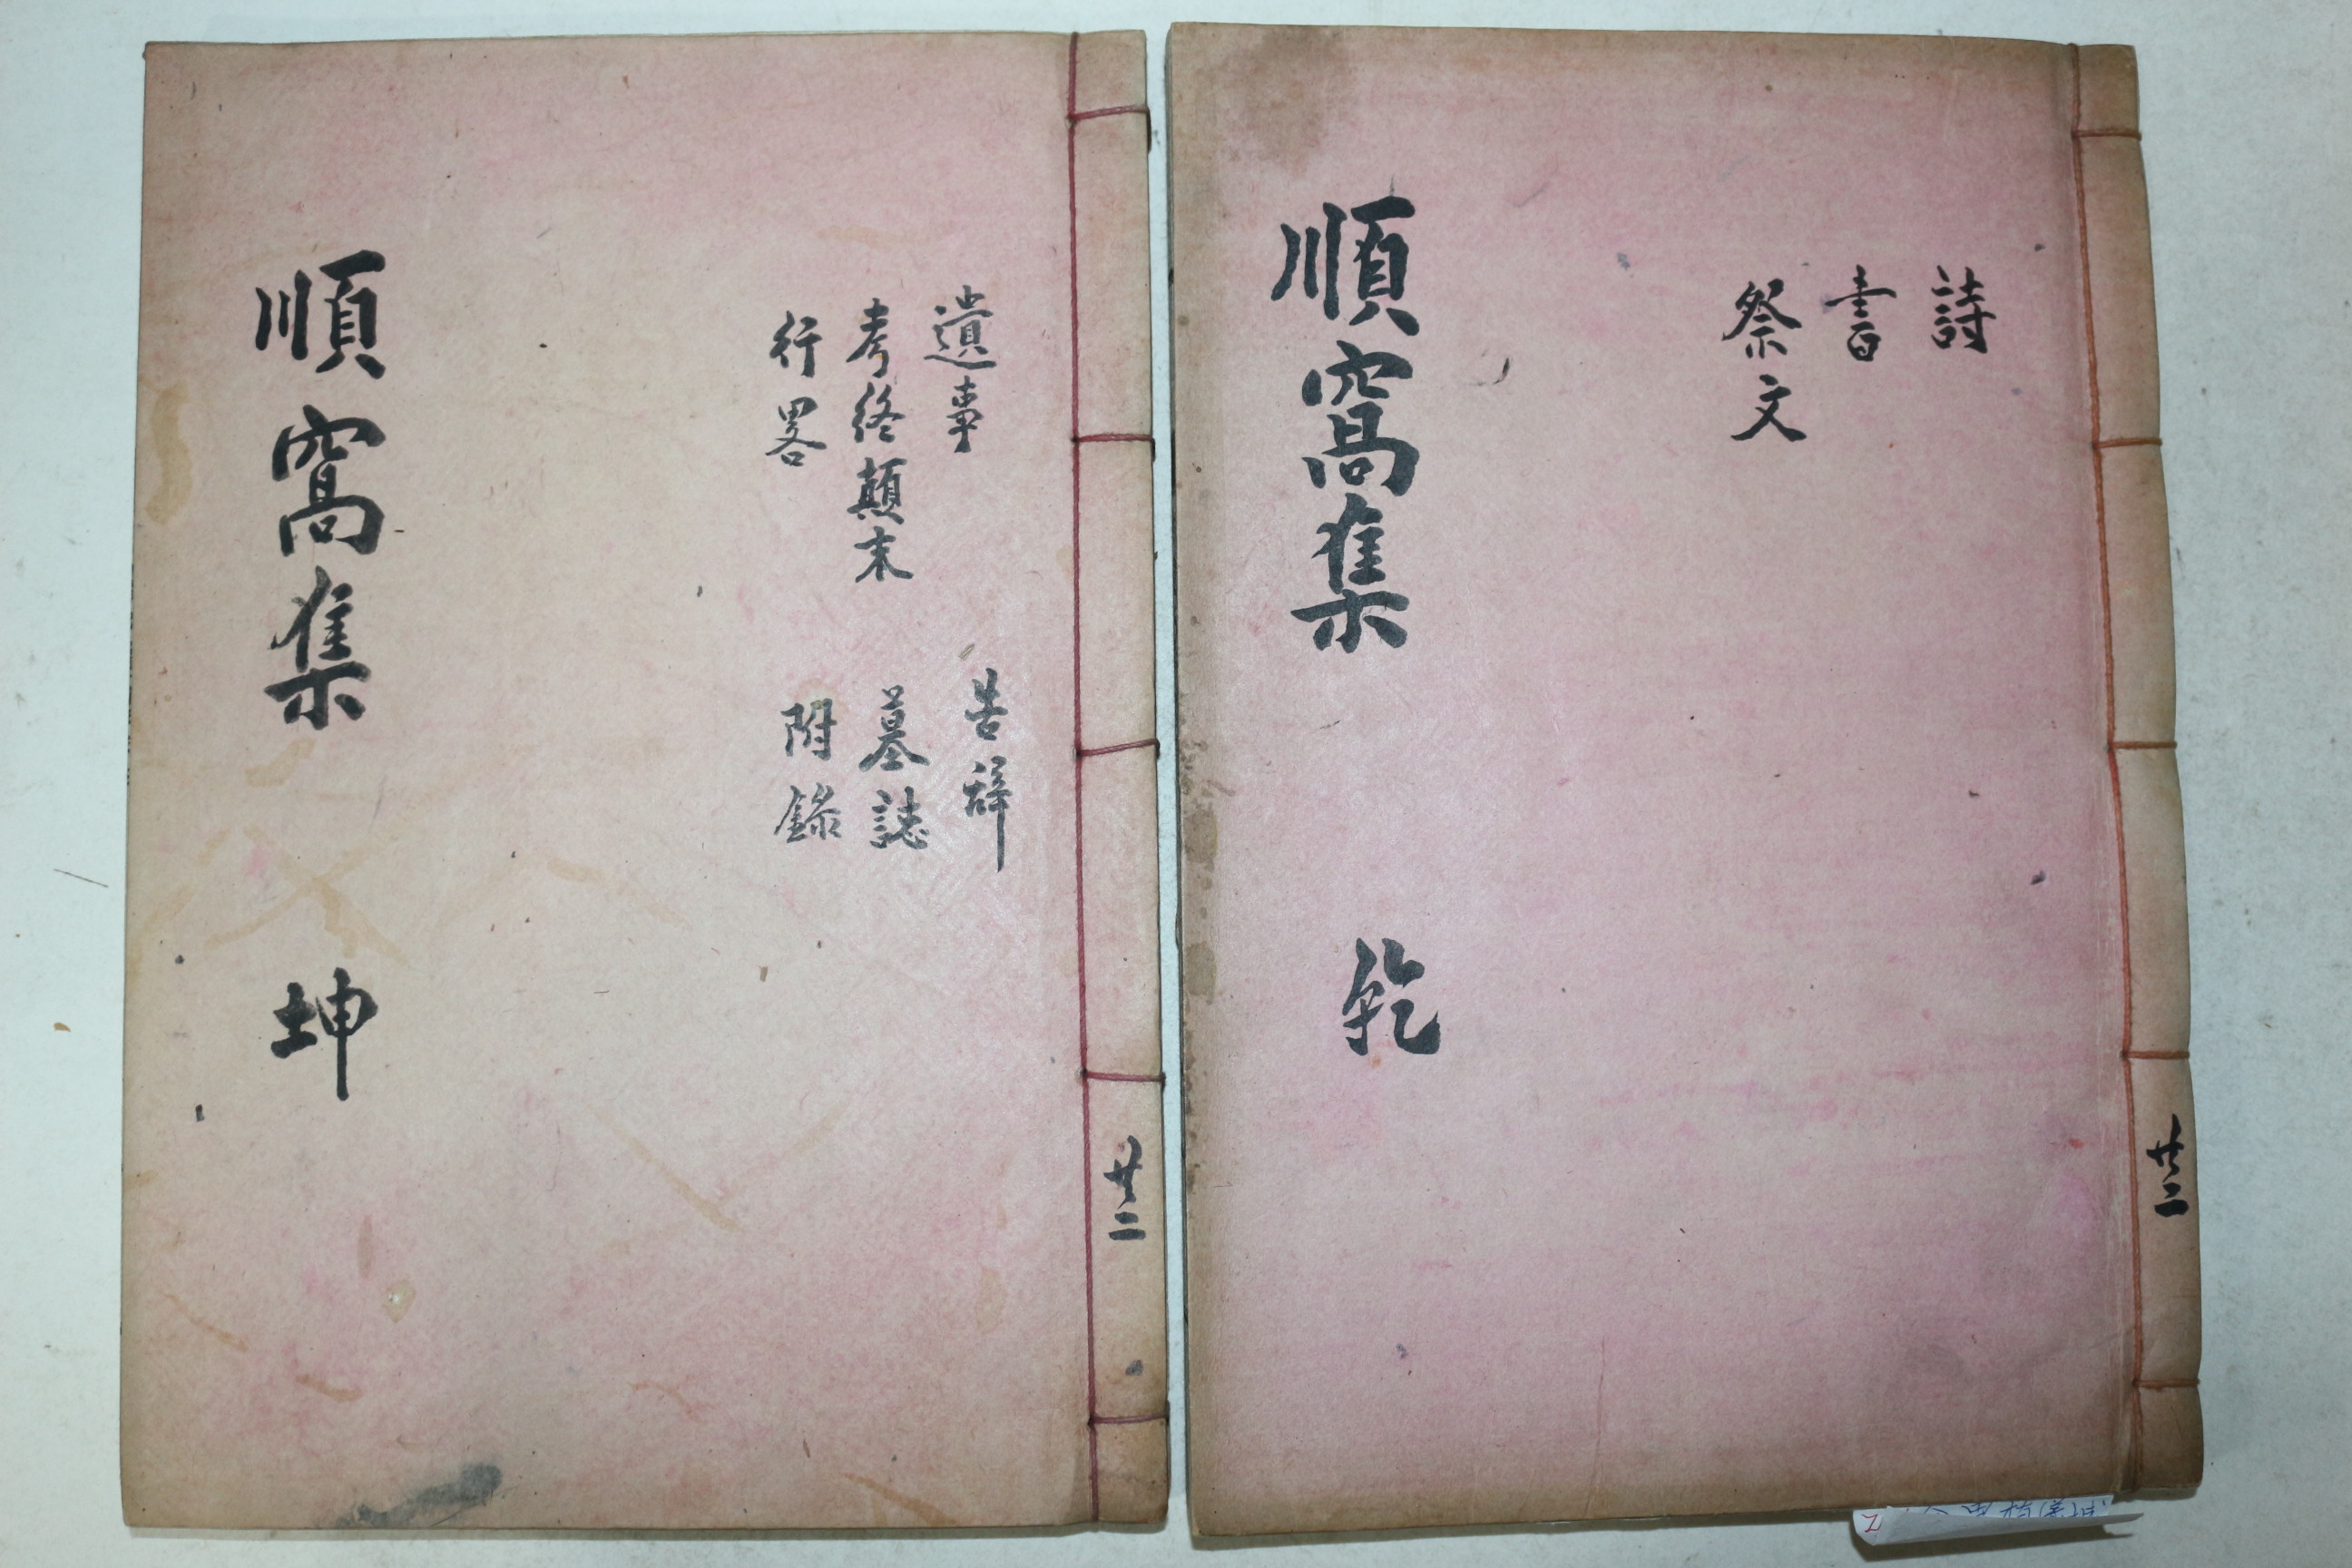 詩
書
祭文
順窩集 乾
共二
遺事 告辞
考終顛末 墓誌
行畧 附錄
順窩集 坤
共二